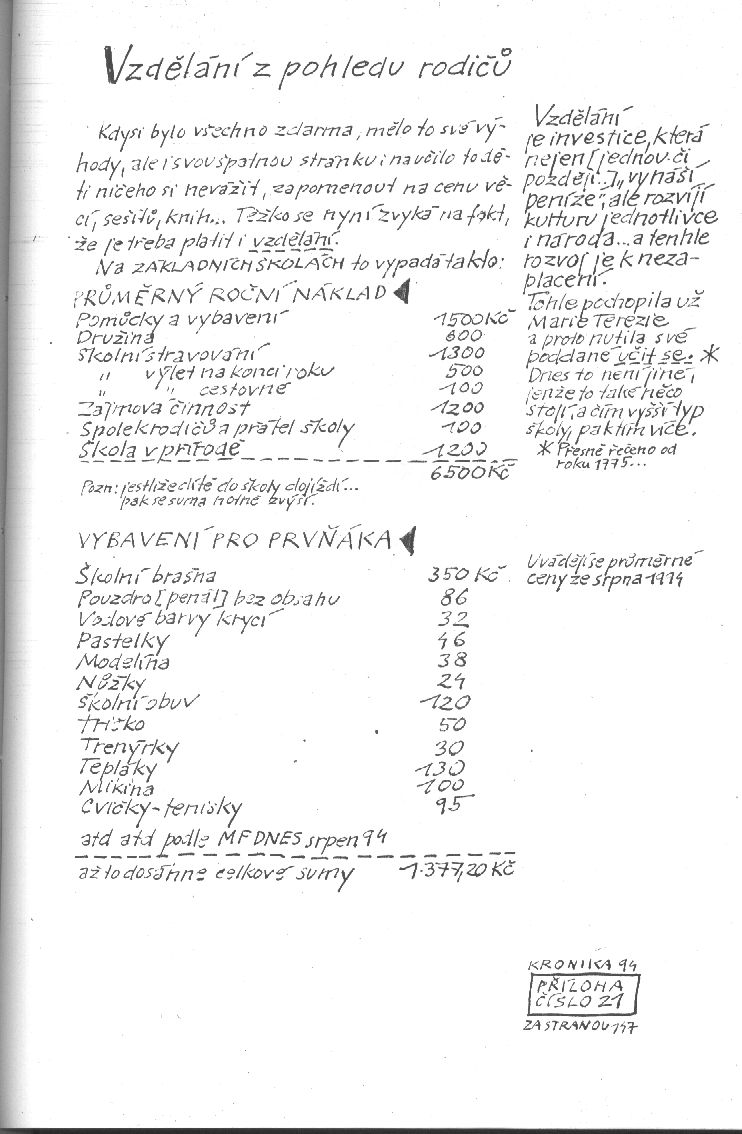 Vzdělání z pohledu rodičů
Kdysi bylo všechno zdarma, mělo to své vý-
hody, ale i svou špatnou stránku i naučilo to dě-
ti ničeho si nevážit, zapomenout na cenu vě-
cí, sešitů, knih... Těžko se nyní zvyká na fakt,
že je třeba platit i vzdělání.
Na ZÁKLADNÍCH ŠKOLÁCH to vypadá takto:
PRŮMĚRNÝ ROČNÍ NÁKLAD
Pomůcky a vybavení 1500 Kč
Družina 600
Školní stravování 1300
" výlet na konci roku 500
" cestovné 100
Zájmová činnost 1200
Spolek rodičů a přátel školy 100
Škola v přírodě 1200
6500 Kč
Pozn: jestliže dítě do školy dojíždí...
pak se suma hodně zvýší.
VYBAVENÍ PRO PRVŇÁKA
Školní brašna 350 Kč
Pouzdro [penál] bez obsahu 86
Vodové barvy krycí 32
Pastelky 46
Modelína 38
Nůžky 24
Školní obuv 120
Tričko 50
Trenýrky 30
Tepláky 130
Mikina 100
Cvičky-tenisky 95
atd atd podle MF DNES srpen 94
až to dosáhne celkové sumy 1.377,20 Kč
Vzdělání
je investice, která
nejen [jednou či
později..] "vynáší
peníze", ale rozvíjí
kulturu jednotlivce
i národa... a tenhle
rozvoj je k neza-
placení.
Tohle pochopila už
Marie Terezie
a proto nutila své
poddané učit se. *
Dnes to není jiné,
jenže to také něco
stojí, a čím vyšší typ
školy, pak tím více.
* Přesně řečeno od
roku 1775...
Uvádějí se průměrné
ceny ze srpna 1994
KRONIKA 94
PŘÍLOHA
ČÍSLO 21
ZA STRANOU 147